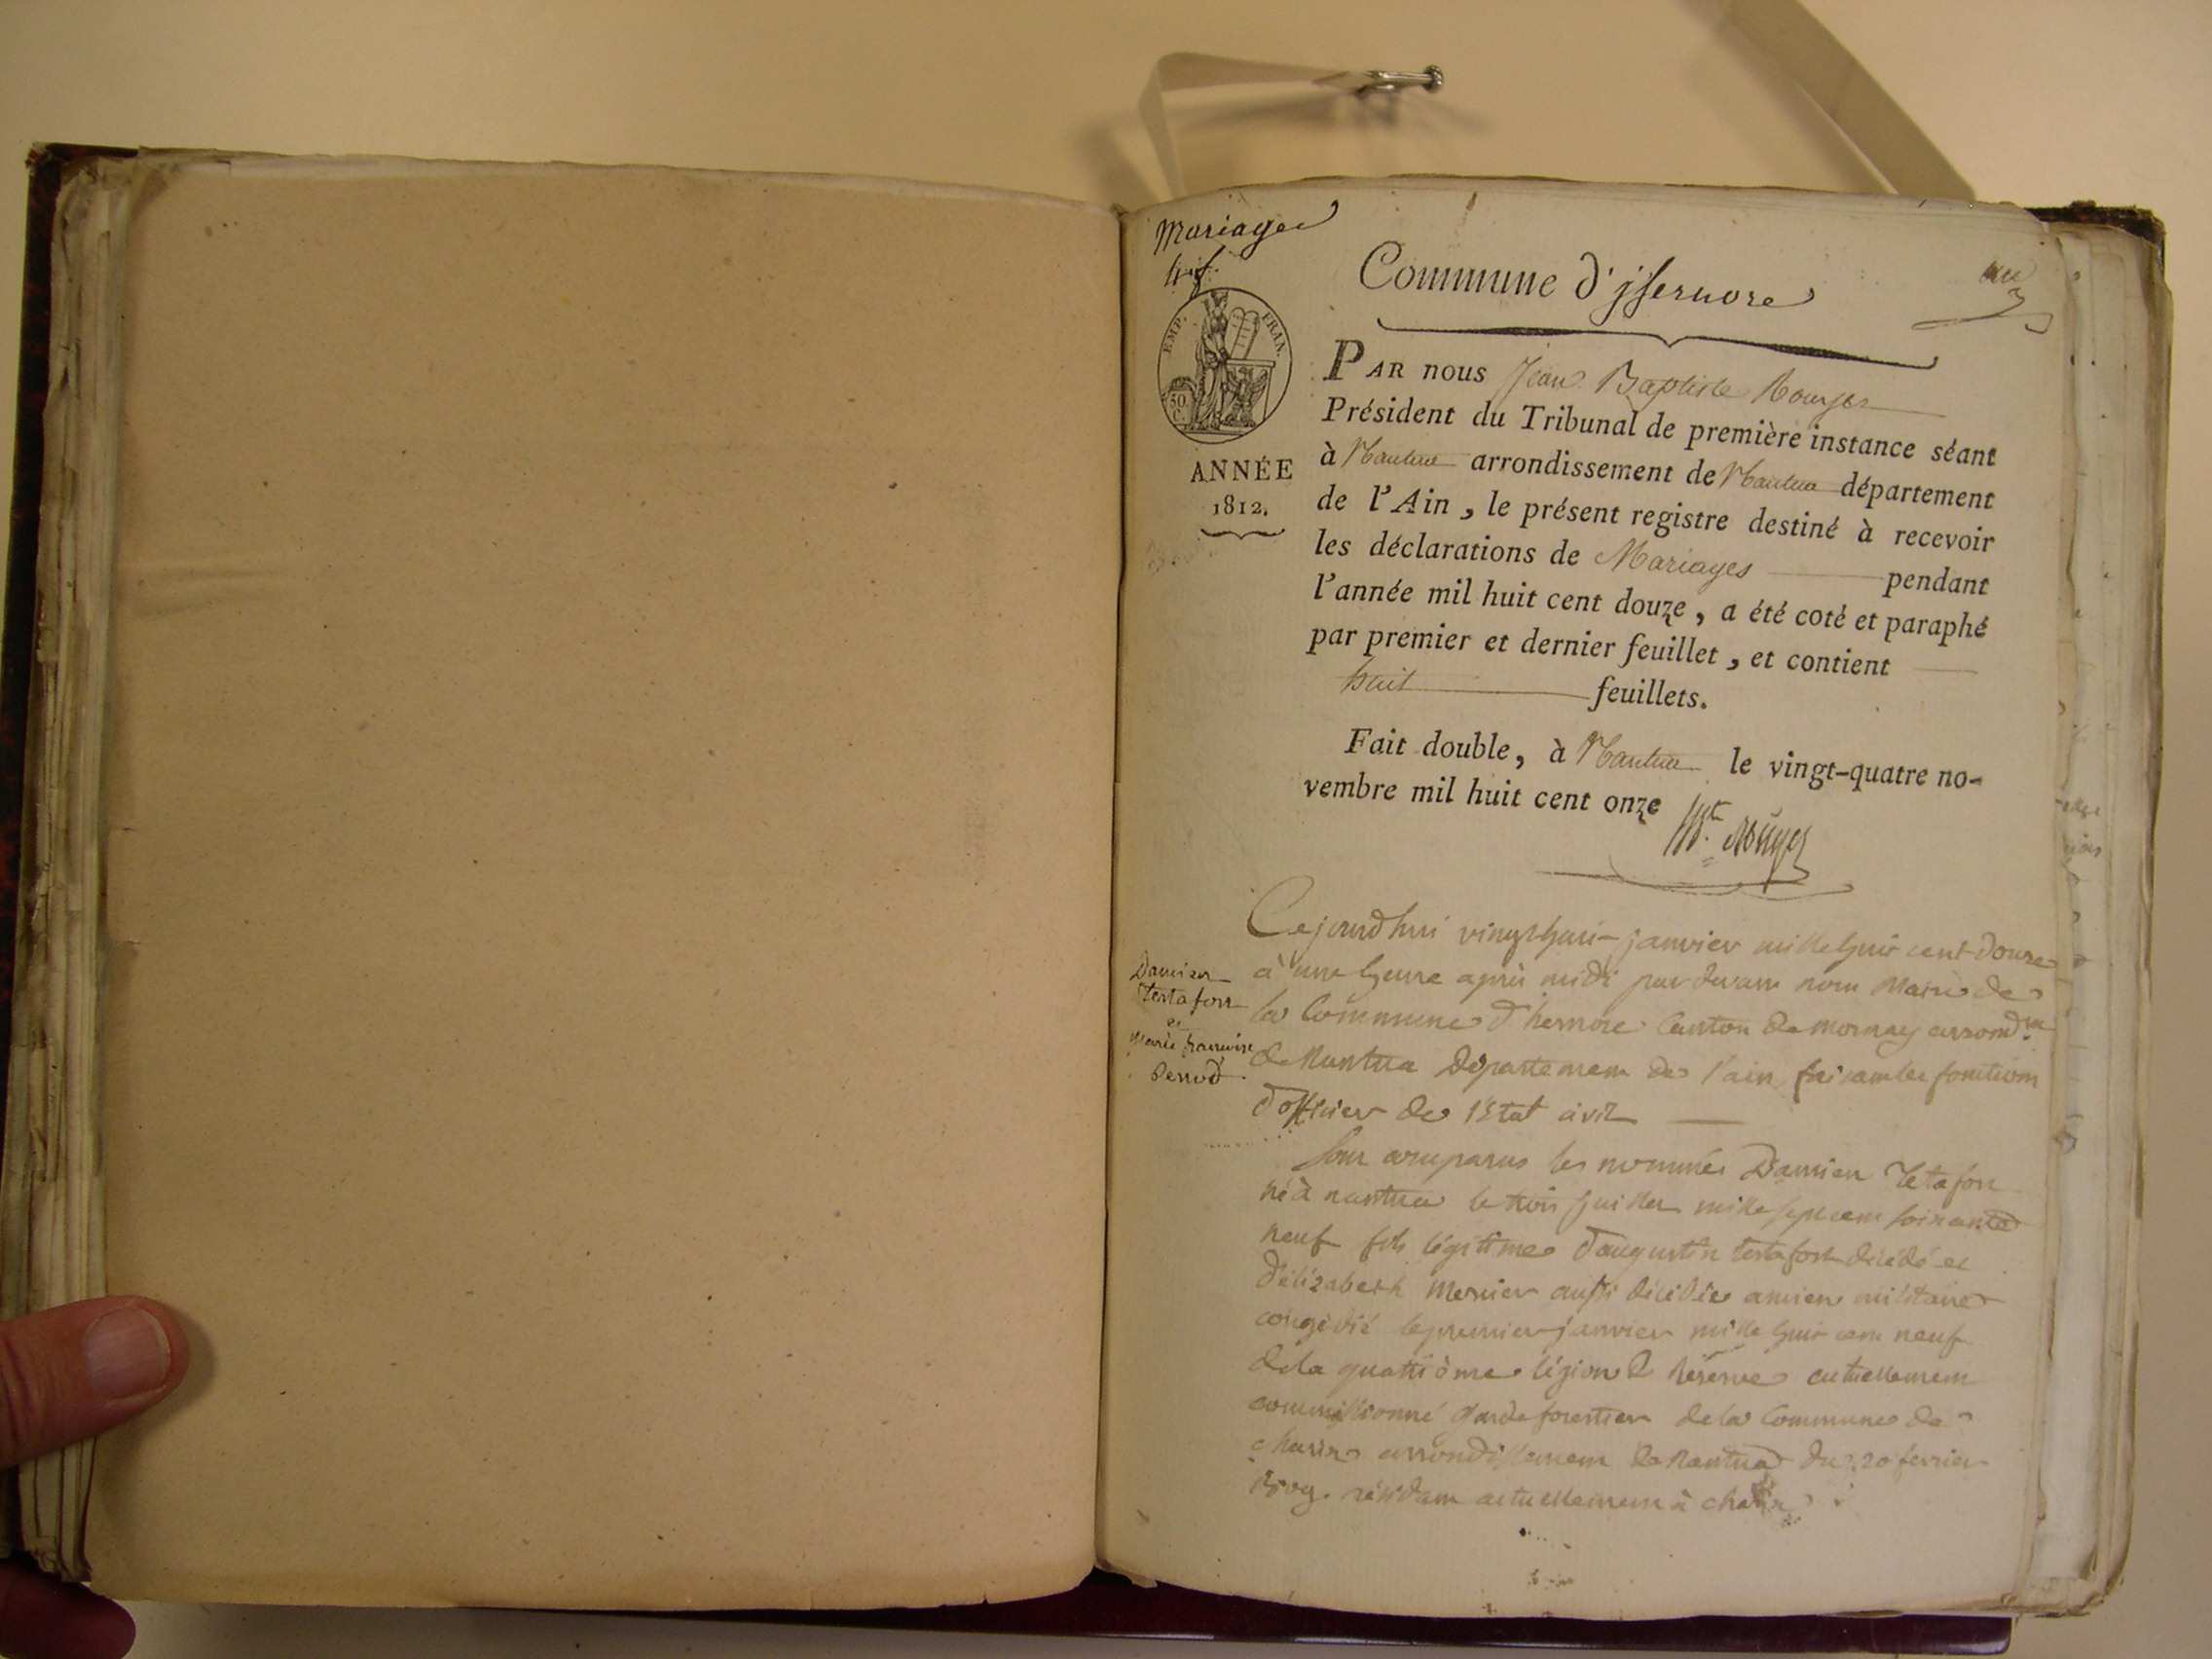 Mariages
Commune d'jsernore
un
EMP. FRAN.
50
C.
ANNÉE
1812.
PAR nous Jean Baptiste Rouyer
Président du Tribunal de première instance séant
à Nantua arrondissement de Nantua département
de l'Ain, le présent registre destiné à recevoir
les déclarations de Mariages pendant
l'année mil huit cent douze, a été coté et paraphé
par premier et dernier feuillet, et contient
huit feuillets.
Fait double, à Nantua le vingt-quatre no-
vembre mil huit cent onze
Bte Rouyer
Damien
testafort
et
marie francoise
Perrod
Cejourdhui vingt huit janvier mille huit cent douze
à une heure après midi par devant nous Maire de
la Commune d'hernore Canton de mornay arrondim
de Nantua Département de l'ain faisant les fonctions
d'officier de l'Etat civil
Sont comparus les nommés Damien Tetafort
né à nantua le trois juillet mille sept cent soixante
neuf fils légitime d'augustin testafort décédé et
d'élizabeth Mercier aussi décédée ancien militaire
congédié le premier janvier mille huit cent neuf
dela quattrième légion de réserve actuellement
commissionné garde forestier dela Commune de
charix arrondissement de Nantua du 20 fevrier
1809. résidant actuellement à charix